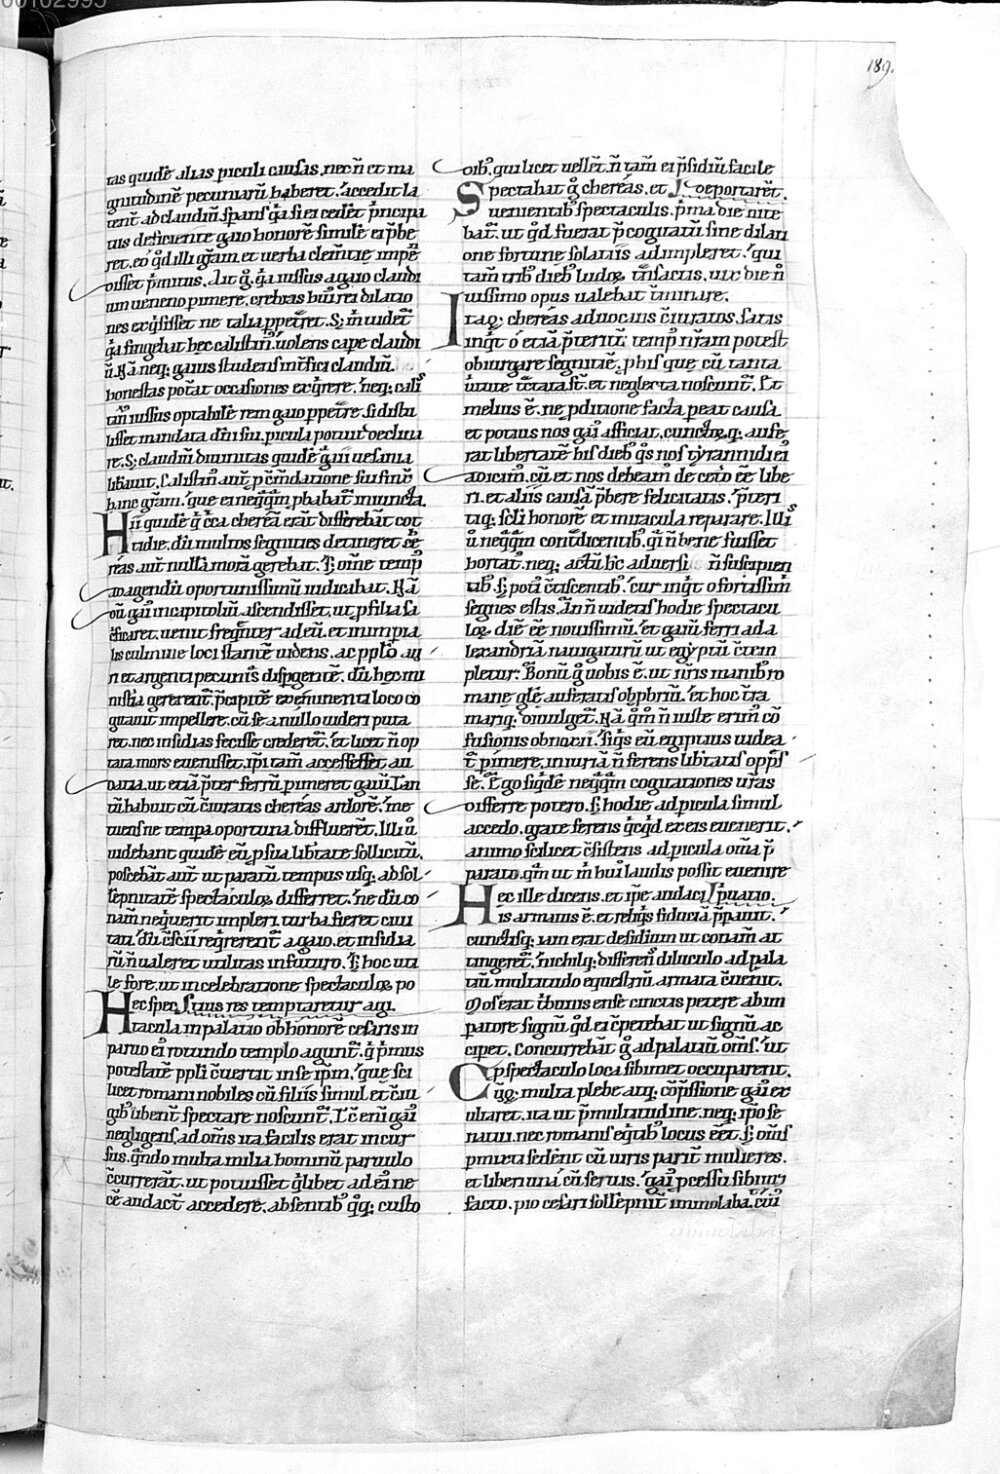 189.
tas quidē alias piculi causas, nec n̄ et ma
gnitudinē pecuniarū haberet. accedit la
tent ad claudiū spans
tus deficiente gaio honorē similē ei p̄be
ret. eo qd illi grām et uerba clemtie impē
disset p̄mitus. Ait g̊ q̄a iussus a gaio claudi
um ueneno pimere, crebras huī rei dilatio
nes exq̇sisset ne talia ppet̄ret. S; m̄ uidet̄
q̄a fingebat hec calistꝰ. uolens cape claudi
ū. Nā neq; gaius studens int̄fici claudiū.
honestas pot̄at occasiones exq̇rere. neq; calis
tꝰ iussus optabilē rem gaio ppet̄re si distu
lisset mandata dn̄i sui, picula potuit declina
re. S; claudiū diuinitas quidē gaii uesania
libauit. Calistꝰ aut̄ p cōmdatione sui finē
hanc grām. que ei neq̄q̄m pbabat̄ inuincta.
Hii quidē q̇ c̄ca cherēā erāt differebāt cot
tidie. dū multos segnities detineret che
rēas aut̄ nullā morā gerebat. S; om̄e temp
ad agendū oportunissimū iudicabat. Nā
dū gai in capitoliū ascendisset, ut p filia sa
c̄ficaret. uenit freq̄nter ad eū. et in impia
lis culmine loci stantē uidens. ac pplo au
ri et argenti pecuniis dispgentē. dū hec mi
nist̄ia gererent̄. p̄cipue ex eminenti loco co
gitauit impellere. cū se a nullo uideri puta
ret. nec insidias fecisse crederet̄. et licet n̄ op
tata mors euenisset. ip̄i tam accessisset au
dacia. ut etiā p̄ter ferrū pimeret gaiū. Tan
tū habuit cū c̄iuratis cherēas ardorē. ne
uiens ne tempa oportuna difflueret̄. Illi ū
uidebant quidē eū p sua lib̄tate sollicitū.
poscebāt aut̄ ut paratū tempus usq; ad sol
lēpnitatē spectaculoꝝ differret. ne dū co
nam̄ neq̇uerit impleri. turba fieret ciui
tati. dū c̄scii req̇rerent̄ a gaio. et insidia
rū n̄ ualeret utilitas in futuro. S; hoc uti
le fore. ut in celebratione spectaculoꝝ po
Hec spec⸝ tius res temptaretur agi.
tacula in palatio ob honorē cesaris in
paruo ei rotundo templo agunt̄. q̇ p̄mus
potestatē ppli c̄uertit in se ip̄m. que sci
licet romani nobiles cū filiis simul et c̄iu
gib ubent̄ spectare noscunt̄. Ic̄ enī gai
negligens. ad om̄s ita facilis erat incur
sus. q̄ndo multa milia hominū paruulo
c̄currerāt. ut potuisset q̇libet ad eī ne
cē audact̄ accedere. absentib q̇q; custo
dib. qui licet uellet̄. n̄ tam̄ ei p̄sidiū facile
Spectabat g̊ cherēas. et ⸝ deportaret̄.
uenientib spectaculis. p̄ma die nite
bat̄. ut qd fuerat p̄cogitatū sine dilati
one fortune solatiis adimpleret. qui
tam̄ trib dieb ludoꝝ t̄nsactis. uix die n
uissimo opus ualebat t̄minare.
Itaq; cherēas aduocans c̄iuratos. Satis
inq̇t ō etiā p̄teritū temp nr̄am potest
obiurgare segnitiē. p hiis que cū tanta
ū̄tute t̄ctata st̄. et neglecta noscunt̄. Et
melius ē. ne pditione facta pereat causa
et potius nos gai afficiat. cunctoꝝq; aufe
rat libertatē. his dieb q̄s nos tyrannidi ei
adicim. cū et nos debeam de cet̄o ēē libe
ri. et aliis causā p̄bere felicitatis. p̄teri
tiq; scl̄i honorē et miracula reparare. Illis
ū neq̄q̄m cont̄dicentib. q̇ n̄ bene fuisset
hortat. neq; actū hic aduersi n̄ suscipien
tib. S; poti c̄tiscentib. cur inq̇t o fortissimi
segnes estis. An n̄ uidetis hodie spectacu
loꝝ diē ēē nouissimū. et gaiū ferri ad a
lexandriā nauigaturū ut egyptū c̄tem
pletur. Bonū g̊ uobis ē. ut nr̄is manib ro
mane gl̄e auferatis obp̄briū. et hoc t̄ra
mariq; diuulget̄. Nā q̄m n̄ iuste erim cō
fusionis obnoxii. si q̇s eū egiptius uidea
t̄ pimere. iniuriā n̄ ferens lib̄tatis opp̄s
se. Ego siq̇dē neq̄q̄m cogitationes ur̄as
differre potero. s; hodie ad picula simul
accedo. grate ferens q̇cq̇d ex eis euenerit.
animo scilicet c̄sistens ad picula om̄ia p̄
parato. q̄m ut m̄ hui laudis possit euenire
Hec ille dicens. et ip̄e audaci⸝ p̄uatio.
is armatus ē. et reliq̇s fiduciā p̄parauit.
cunctisq; iam erat desidium ut conam̄ at
tingeret̄. nichilq; differēn̄ diluculo ad pala
tiū multitudo equestriū armata c̄uenit.
Mos erat t̄bunus ense cinctus petere ab im
patore signū. qd ei c̄petebat ut signū ac
cipet. Concurrebāt g̊ ad palatiū om̄s. ut
p spectaculo loca sibimet occuparent.
Cūq; multa plebe atq; cōp̄ssione gai ex
ultaret. ita ut p̄ multitudine. neq; ip̄o se
natui. nec romanis eq̇tib locus ēēt. s; om̄s
pmixti sedent̄ cū uiris parit̄ mulieres.
et liberi uni cū seruis. gai pcessu sibimi
facto. pio cesari sollēpnit̄ immolabat. cui